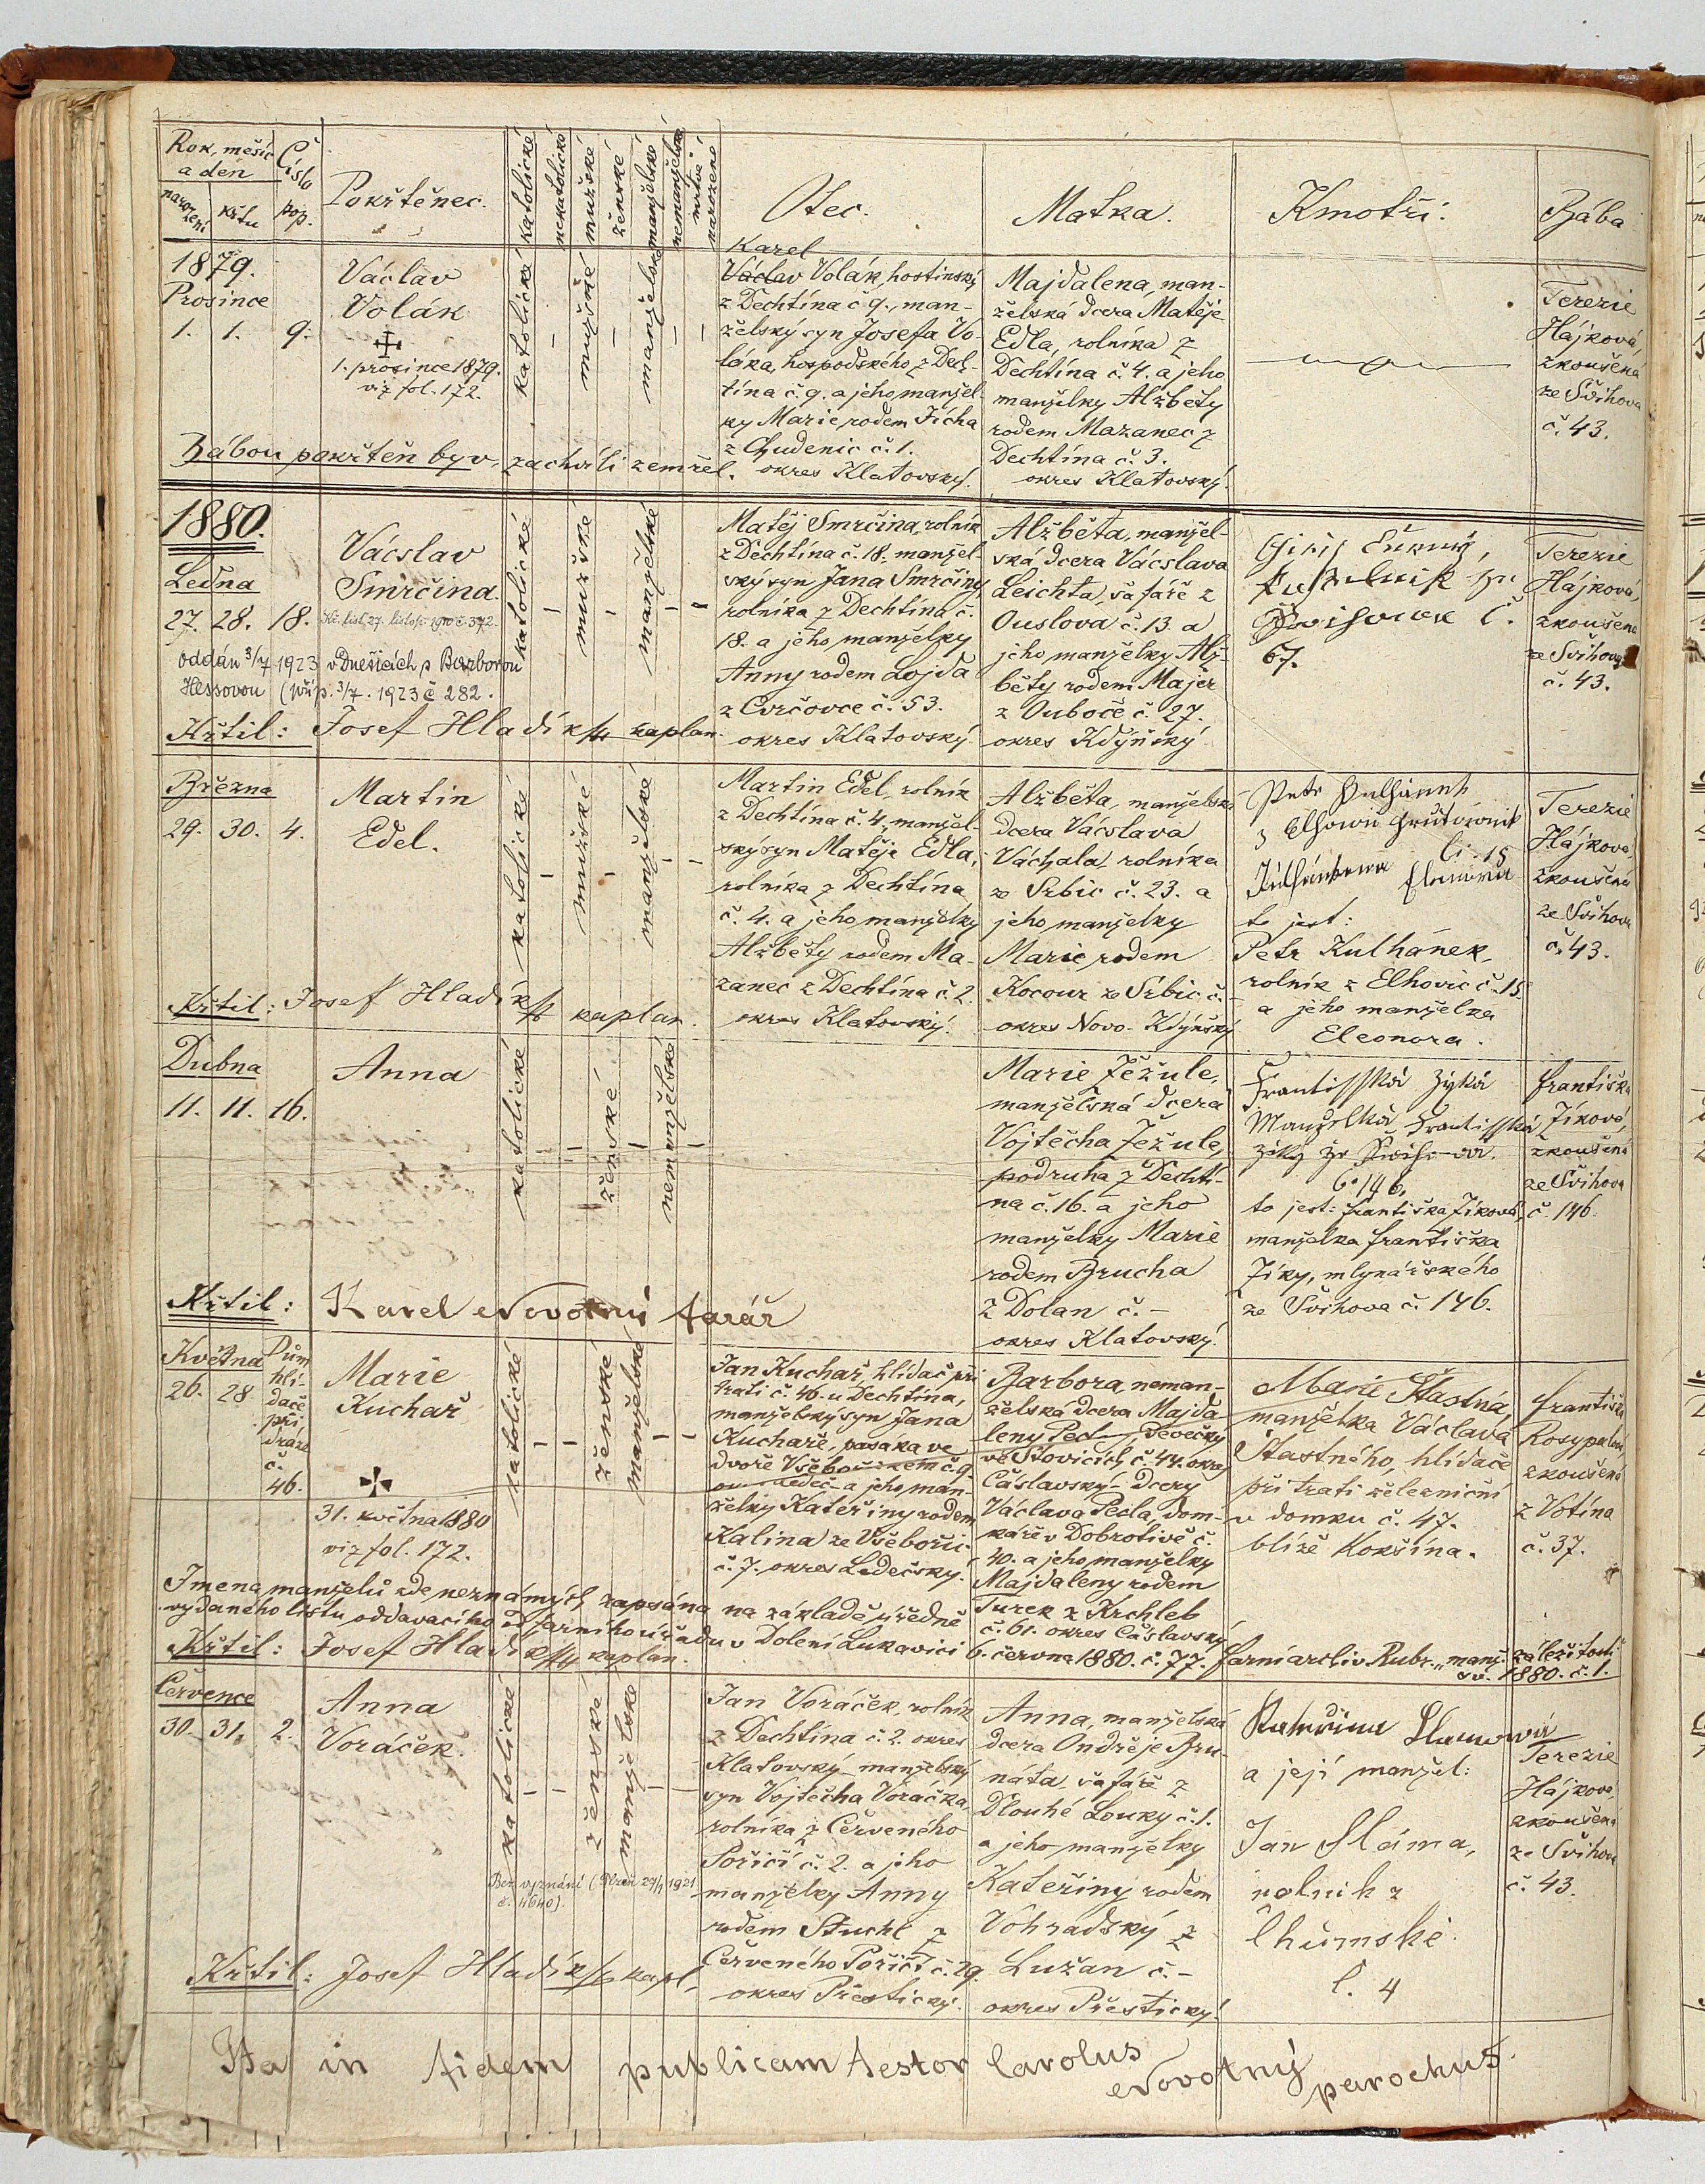 Rok, měsíc
a den
narození
křtu
Číslo
pop.
Pokřtěnec.
katolické
nekatolické
mužské
ženské
manželské
nemanželské
mrtvě
narozeno
Otec.
Matka.
Kmotři:
Bába
1879.
Prosince
1. 1. 9.
Václav
Volák
1. prosince 1879.
viz fol. 172.
katolické
mužské
manželské
Karel
Václav Volák, hostinský
z Dechtína č 9., man-
želský syn Josefa Vo-
láka, hospodského z Dech-
tína č. 9. a jeho manžel-
ky Marie, rodem Jícha
z Chudenic č. 1.
okres Klatovský.
Majdalena, man-
želská dcera Matěje
Edla, rolníka z
Dechtína č. 4. a jeho
manželky Alžběty
rodem Mazanec z
Dechtína č. 3.
okres Klatovský.
Terezie
Hájková,
zkoušená
ze Švihova
č. 43.
Bábou pokřtěn byv, zachvíli zemřel.
1880.
Ledna
27. 28. 18.
Vácslav
Smrčina.
oddán 3/7 1923 v Dnešicích s Barborou
Hessovou (příp. 3/7. 1923 č 282.
katolické
mužské
manželské
Matěj Smrčina, rolník
z Dechtína č. 18. manžel-
ský syn Jana Smrčiny
rolníka z Dechtína č.
18. a jeho manželky
Anny rodem Lojda
z Cvrčovce č. 53.
okres Klatovský.
Alžběta, manžel-
ská dcera Vácslava
Leichta, šafáře z
Ouslova č. 13. a
jeho manželky Alž-
běty rodem Majer
z Ouboče č. 27.
okres Kdýňský
67.
Terezie
Hájková,
zkoušená
ze Švihova
č. 43.
Křtil: Josef Hladík kaplan.
Března
29. 30. 4.
Martin
Edel.
katolické
mužské
manželské
Martin Edel, rolník
z Dechtína č. 4., manžel-
ský syn Matěje Edla,
rolníka z Dechtína
č. 4. a jeho manželky
Alžběty rodem Ma-
zanec z Dechtína č. 2.
okres Klatovský.
Alžběta, manželská
dcera Vácslava
Váchala rolníka
ze Srbic č. 23. a
jeho manželky
Marie rodem
Kocour ze Srbic č. –
okres Novo-Kdýňský
to jest:
Petr Kulhánek,
rolník z Elhovic č. 15.
a jeho manželka
Eleonora.
Terezie
Hájkova,
zkoušená
ze Švihova
č. 43.
Křtil: Josef Hladík kaplan.
Dubna
11. 11. 16.
Anna
katolické
ženské
nemanželské
Marie Ježule,
manželská dcera
Vojtěcha Ježule,
podruha z Dechtí-
na č. 16. a jeho
manželky Marie
rodem Brucha
z Dolan č. –
okres Klatovský.
č. 146.
to jest: Františka Zíková,
manželka Františka
Zíky, mlynářského
ze Švihova č. 146.
Františka
Zíková,
zkoušená
ze Švihova
č. 146.
Křtil: Karel Novotný farář
Května
26. 28.
Dům
hlí-
dače
při
dráze
č.
46.
Marie
Kuchař
31. května 1880
viz fol. 172.
katolické
ženské
manželské
Jan Kuchař, hlídač při
trati č. 46. u Dechtína,
manželský syn Jana
Kuchaře, pasáka ve
dvoře č. 9.
a jeho man-
želky Kateřiny rodem
Kalina ze Všebořic
č. 7. okres Ledečský.
Barbora, neman-
želská dcera Majda-
leny děvečky
ve Štovicích č. 44. okres
Čáslavský – dcery
Václava Pecla, dom-
káře v Dobrotivě č.
40. a jeho manželky
Majdaleny rodem
Turek z Krchleb
č. 61. okres Čáslavský.
Marie Šťastná,
manželka Václava
Šťastného, hlídače
při trati železniční
v domku č. 47.
blíže Kokšína.
Františka
Rosypalová,
zkoušená
z Votína
č. 37.
Jmena manželů zde neznámých zapsána na základě úředně
vydaného listu oddavacího z farního úřadu v Dolení Lukavici 6. června 1880. č. 77. farní archiv Rubr. „manž. záležitosti"
1880. č. 1.
Křtil: Josef Hladík kaplan.
Července
30. 31. 2.
Anna
Voráček.
katolické
ženské
manželské
Bez vyznání (Plzeň 27/1 1921
č. 4640).
Jan Voráček, rolník
z Dechtína č. 2. okres
Klatovský – manželský
syn Vojtěcha Voráčka,
rolníka z Červeného
Poříčí č. 2. a jeho
manželky Anny
rodem Stuchl z
Červeného Poříčí č. 29.
okres Přestický.
Anna, manželská
dcera Ondřeje Bru-
náta, šafáře z
Dlouhé Louky č. 1.
a jeho manželky
Kateřiny rodem
Vohradský z
Lužan č. –
okres Přestický.
Kateřina Slamová
a její manžel:
Jan Sláma,
rolník z
Chumské
č. 4
Terezie
Hájkova,
zkoušená
ze Švihova
č. 43.
Křtil: Josef Hladík kapl.
Ita in fidem publicam testor Carolus
Novotný parochus.